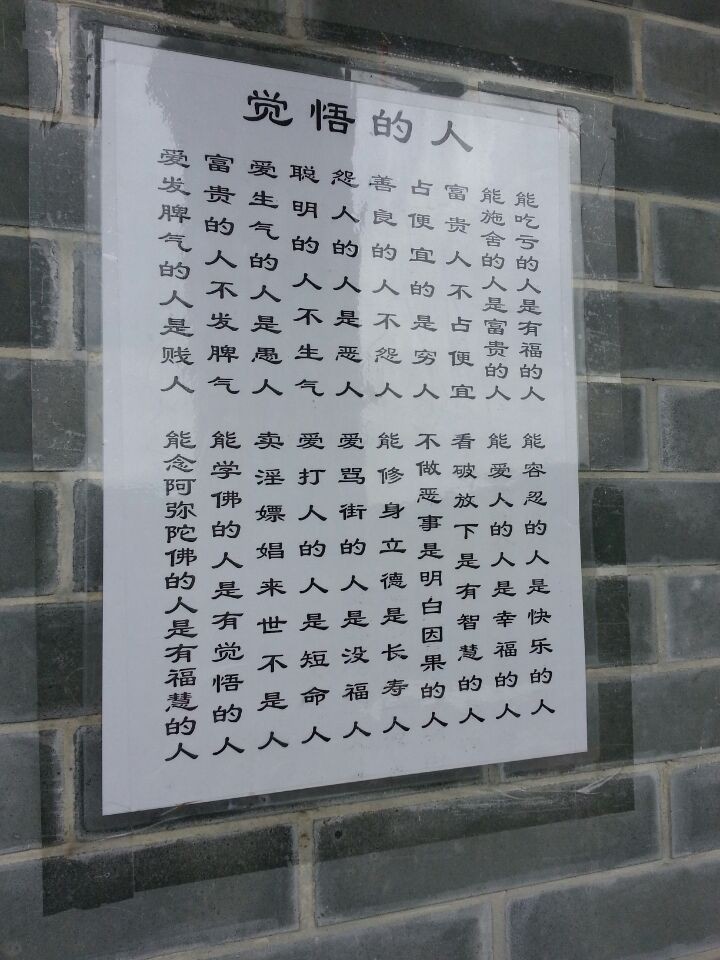 觉悟的人
能吃亏的人是有福的人
能施舍的人是富贵的人
富贵人不占便宜
占便宜的是穷人
善良的人不怨人
怨人的人是恶人
聪明的人不生气
爱生气的人是愚人
富贵的人不发脾气
爱发脾气的人是贱人
能容忍的人是快乐的人
能爱人的人是幸福的人
看破放下是有智慧的人
不做恶事是明白因果的人
能修身立德是长寿人
爱骂街的人是没福人
爱打人的人是短命人
卖淫嫖娼来世不是人
能学佛的人是有觉悟的人
能念阿弥陀佛的人是有福慧的人